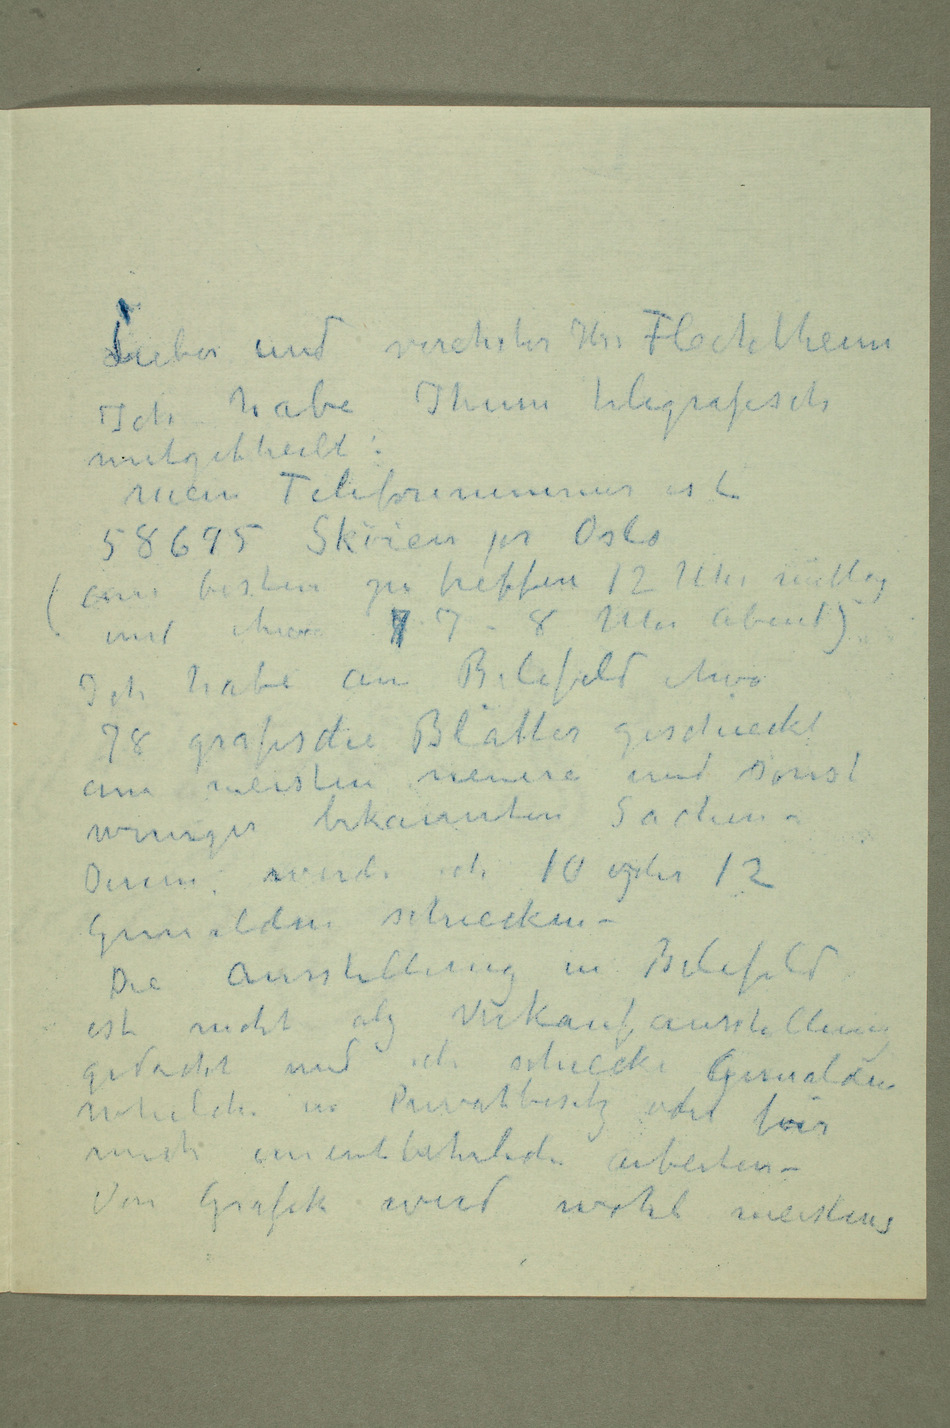 Lieber und verehrter Herr Flechtheim
Ich habe Ihnen telegrafisch
mitgetheilt:
mein Telefonnummer ist
58695 Sköien pr Oslo
(am besten zu treffen 12 Uhr mittag
und 7-8 Uhr abend)
Ich habe an Bilefeld etwa
78 grafische Blätter geschieckt
am meisten neuere und sonst
weniger bekannten Sachen-
werde ich 10 oder 12
Gemälden schiecken-
Die Ausstellung in Bilefeld
ist nicht als Verkaufsausstellung
gedacht und ich schiecke Gemälden
welche in Privatbesitz oder für
mich unentbehrliche arbeiten-
Von Grafik wird wohl meistens